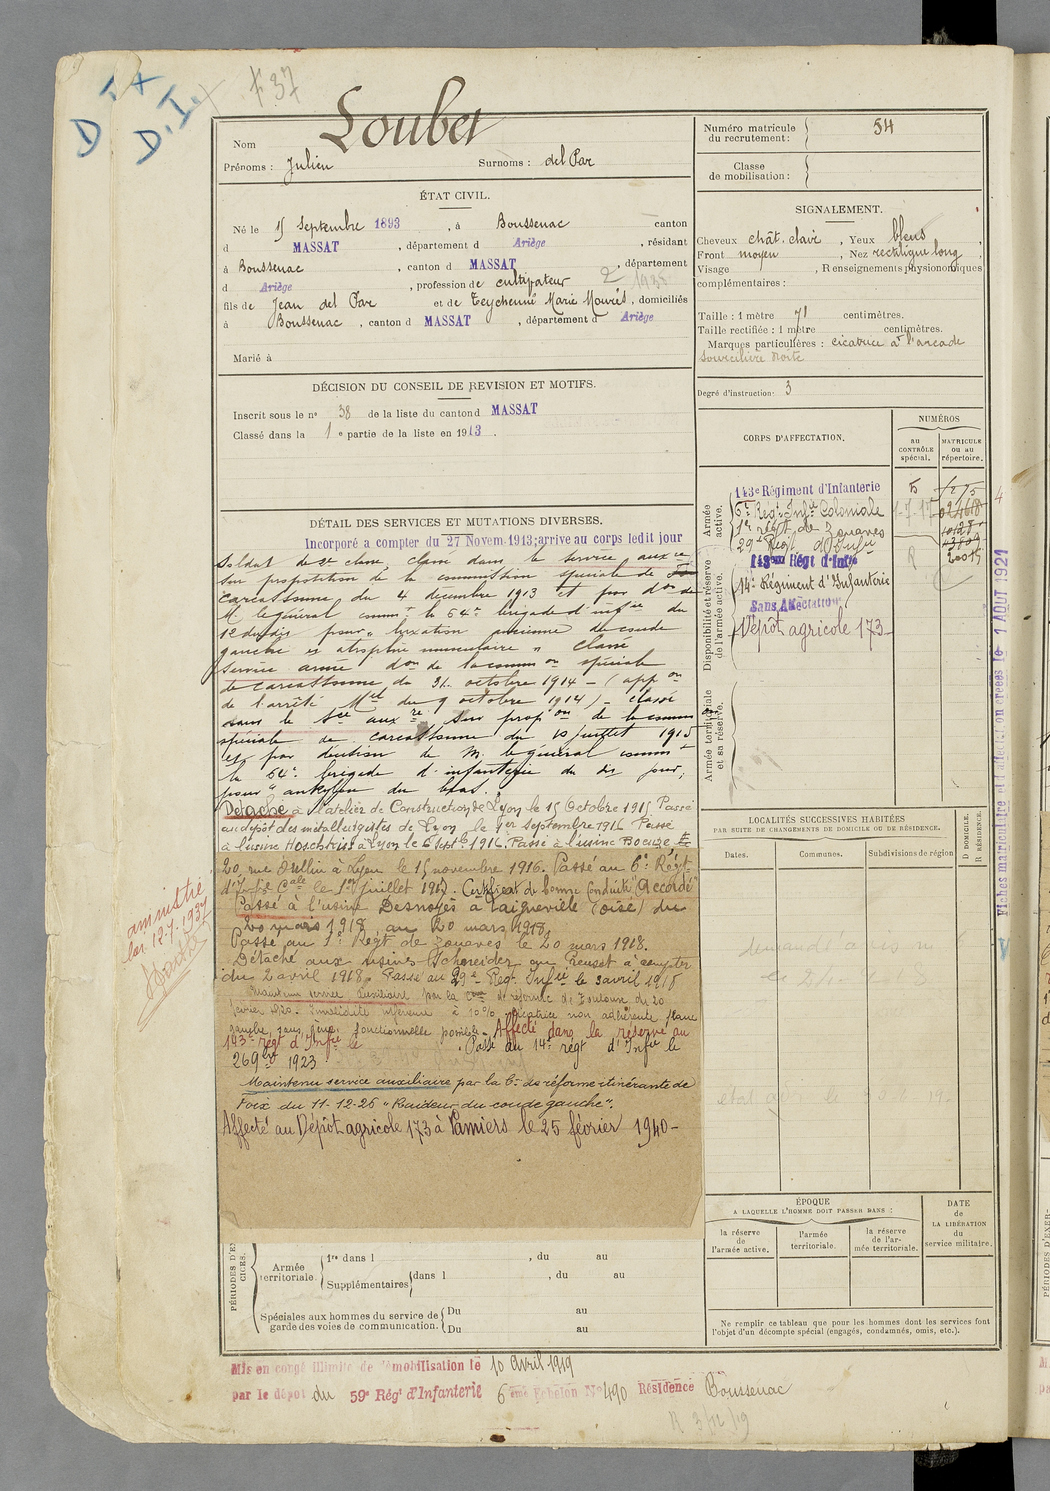 F 37
D.I.x
D.I.x
Nom Loubet
Prénoms : Julien Surnoms : del Par
ÉTAT CIVIL.
Né le 15 Septembre 1893 , à Boussenac canton
d MASSAT , département d Ariège , résidant
à Boussenac , canton d MASSAT , département
d Ariège , profession de cultivateur
fils de Jean del Par et de Teychenné Marie Mourés , domiciliés
à Boussenac , canton d MASSAT , département d Ariège
Marié à
DÉCISION DU CONSEIL DE REVISION ET MOTIFS.
Inscrit sous le no 38 de la liste du canton d MASSAT
Classé dans la 1 e partie de la liste en 1913 .
DÉTAIL DES SERVICES ET MUTATIONS DIVERSES.
Incorporé a compter du 27 Novem. 1913; arrive au corps ledit jour
Soldat de 2e classe, classé dans le service auxre
sur proposition de la commission spéciale de
Carcassonne du 4 décembre 1913 et par don de
M. le général commt la 64e brigade d'infie du
12 du dis pour "luxation ancienne du coude
gauche et atrophie musculaire" Classé
service armé don de la common spéciale
de Carcassonne du 31 octobre 1914 - (appon
de l'arrêté Mel du 9 octobre 1914) - classé
dans le sce auxre sur propon de la commion
spéciale de Carcassonne du 10 juillet 1915
et par décision de M. le général commt
la 64e brigade d'infanterie du dis jour,
pour "ankylose du bras."
Détaché à l'atelier de Construction de Lyon le 15 Octobre 1915 Passé
au dépôt des métallurgistes de Lyon le 1er Septembre 1916 Passé
à l'usine à Lyon le 6 Septbre 1916. Passé à l'usine
20, rue Oullin à Lyon le 15 novembre 1916. Passé au 6e Régt
d'Infie Cale le 1er juillet 1917. Certificat de bonne conduite Accordé
Passé à l'usine Desnoyés à Laigneville (Oise) du
20 mars 1918 au 20 mars 1918.
Passé au 1er Régt de zouaves le 20 mars 1918.
Détaché aux usines Schneider au Creusot à compter
du 2 avril 1918. Passé au 29e Régt Infie le 3 avril 1918
Maintenu service auxiliaire par la Con de réforme de Toulouse du 20
février 1920. Invalidité inférieure à 10% cicatrice non adhérente
gauche, sans gêne fonctionnelle Affecté dans la réserve au
143e régt d'Infie le . Passé au 14e régt d'Infie le
26 9bre 1923
Maintenu service auxiliaire par la Con de réforme itinérante de
Foix du 11-12-26 "Raideur du coude gauche".
Affecté au Dépôt agricole 173 à Pamiers le 25 février 1940 -
amnistié
loi 12.7.1937
PÉRIODES D'EXERCICES.
Armée territoriale. 1re dans l , du au
Supplémentaires dans l , du au
Spéciales aux hommes du service de garde des voies de communication. Du au
Du au
Mis en congé illimité de démobilisation le 10 avril 1919
par le dépot du 59e Régt d'Infanterie 6eme Echelon No 490 Résidence Boussenac
R 3/12/19
Numéro matricule du recrutement : 54
Classe de mobilisation :
SIGNALEMENT.
Cheveux chât. clair , Yeux bleus ,
Front moyen , Nez rectiligne long ,
Visage , Renseignements physionomiques
complémentaires :
Taille : 1 mètre 71 centimètres.
Taille rectifiée : 1 mètre centimètres.
Marques particulières : cicatrice à l'arcade
sourcilière droite
Degré d'instruction : 3
CORPS D'AFFECTATION.
NUMÉROS
au CONTRÔLE spécial.
MATRICULE ou au répertoire.
Armée active.
143e Régiment d'Infanterie
6e Régt Infie Coloniale
1er régt de Zouaves
29e Régt d'Infie
Disponibilité et réserve de l'armée active.
143eme Régt d'Infie
14e Régiment d'Infanterie
Sans Affectation
Dépôt agricole 173
Armée territoriale et sa réserve.
Fiches matriculaire et d'affectation créées le 1 AOUT 1921
LOCALITÉS SUCCESSIVES HABITÉES
PAR SUITE DE CHANGEMENTS DE DOMICILE OU DE RÉSIDENCE.
Dates. Communes. Subdivisions de région
D DOMICILE.
R RÉSIDENCE.
ÉPOQUE
A LAQUELLE L'HOMME DOIT PASSER DANS :
la réserve de l'armée active.
l'armée territoriale.
la réserve de l'armée territoriale.
DATE de LA LIBÉRATION du service militaire.
Ne remplir ce tableau que pour les hommes dont les services font
l'objet d'un décompte spécial (engagés, condamnés, omis, etc.).